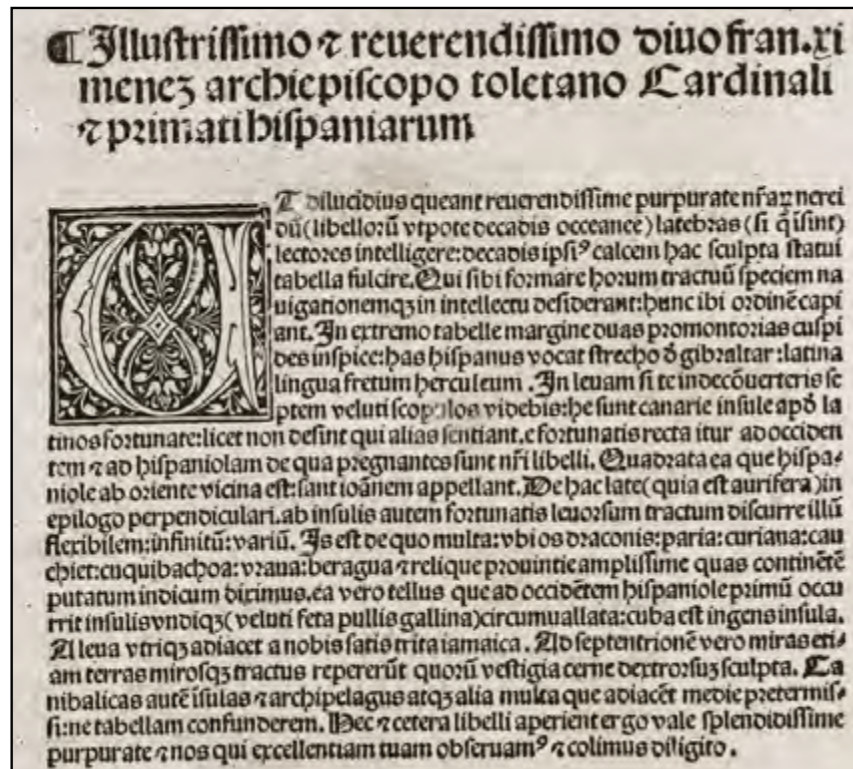 ¶ Illuſtriſſimo ⁊ reuerendiſſimo diuo fran.xi
menez archiepiſcopo toletano Cardinali
⁊ primati hiſpaniarum
UT dilucidius queant reuerendiſſime purpurate nr̃aꝝ nerei
dũ(libelloꝛũ vtpote decadis occeanee)latebꝛas(ſi q̃ iſint)
lectoꝛes intelligere:decadis ipſiꝰ calcem hac ſculpta ſtatui
tabella fulcire.Qui ſibi foꝛmare hoꝛum tractuũ ſpeciem na
uigationemqꝫ in intellectu deſiderant:hunc ibi oꝛdinẽ capi
ant.In extremo tabelle margine duas pꝛomontoꝛias cuſpi
des inſpice:has hiſpanus vocat ſtrecho đ gibꝛaltar:latina
lingua fretum herculeum .In leuam ſi te inde cõuerteris ſe
ptem veluti ſcopulos videbis:he ſunt canarie inſule apđ la
tinos foꝛtunate:licet non deſint qui alias ſentiant.e foꝛtunatis recta itur ad occiden
tem ⁊ ad hiſpaniolam de qua pꝛegnantes ſunt nr̃i libelli. Quadꝛata ea que hiſpa⸗
niole ab oꝛiente vicina eſt:ſant ioãnem appellant.De hac late(quia eſt aurifera)in
epilogo perpendiculari.ab inſulis autem foꝛtunatis leuoꝛſum tractum diſcurre illũ
flexibilem:infinitũ:variũ. Is eſt de quo multa:vbi os dꝛaconis:paria:curiana:cau
chiet:cuquibachoa:vꝛaua:beragua ⁊ relique pꝛouintie ampliſſime quas continẽtẽ
putatum indicum diximus.ea vero tellus que ad occidẽtem hiſpaniole pꝛimũ occu
rrit inſulis vndiqꝫ(veluti feta pullis gallina)circumuallata:cuba eſt ingens inſula.
A leua vtriqꝫ adiacet a nobis ſatis trita iamaica . Ad ſeptentrionẽ vero miras eti⸗
am terras miroſqꝫ tractus repererũt quoꝛũ veſtigia cerne dextroꝛſuꝫ ſculpta. Ca
nibalicas autẽ iſulas ⁊ archipelagus atqꝫ alia multa que adiacẽt medie pꝛetermiſ⸗
ſi:ne tabellam confunderem. Hec ⁊ cetera libelli aperient ergo vale ſplendidiſſime
purpurate ⁊ nos qui excellentiam tuam obſeruamꝰ ⁊ colimus diligito .